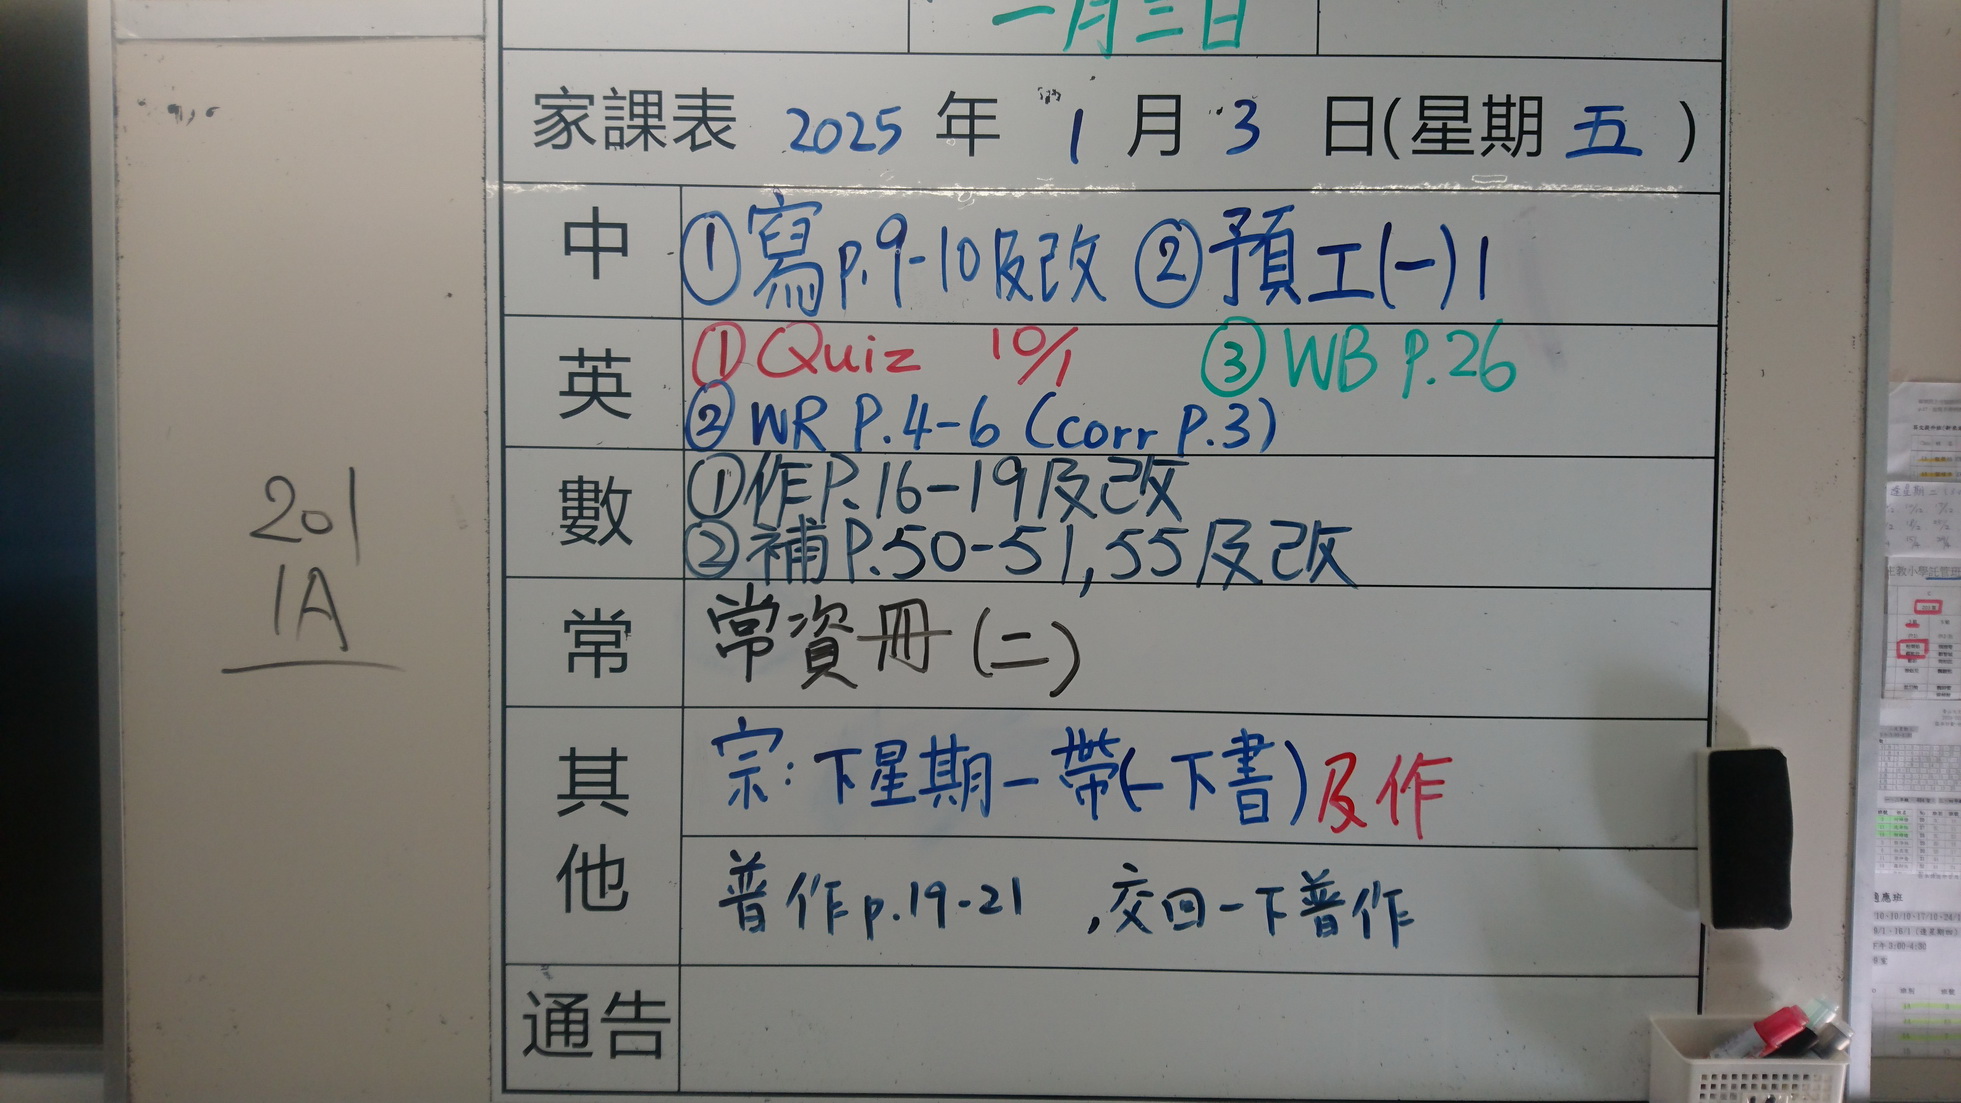 一月三日
家課表 2025 年 1 月 3 日(星期 五 )
中 ①寫p.9-10及改 ②預工(一)1
英 ①Quiz 10/1 ③WB P.26
②WR P.4-6 (corr P.3)
數 ①作P.16-19及改
②補P.50-51,55及改
常 常資冊(二)
其他 宗:下星期一帶(一下書)及作
普作p.19-21 ,交回一下普作
通告
201
1A